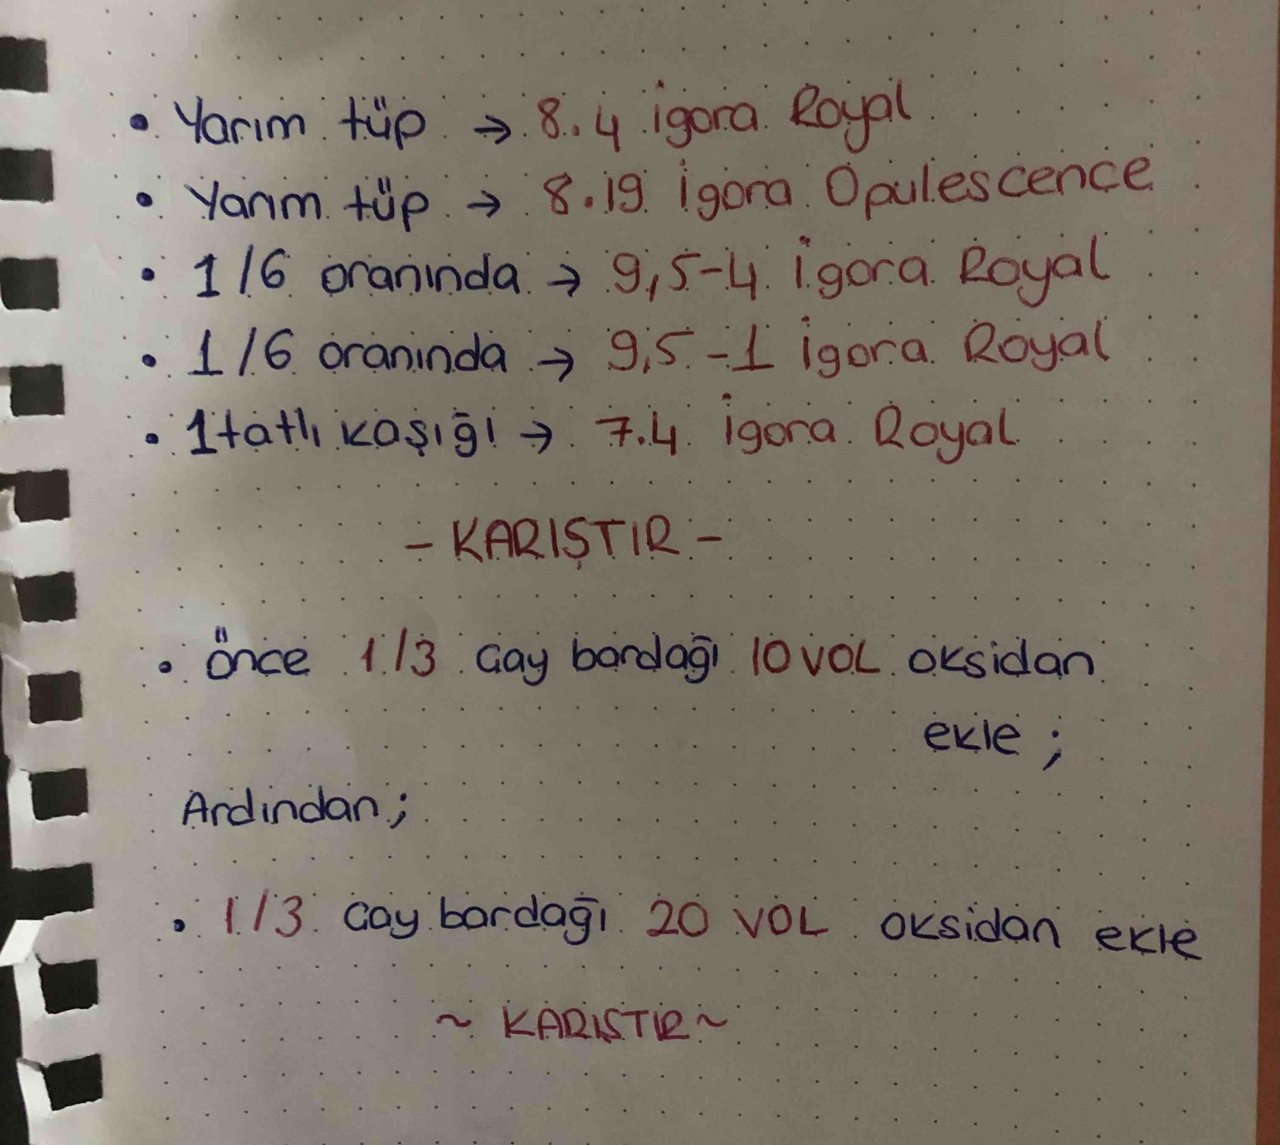 • Yarım tüp → 8.4 İgora Royal
• Yarım tüp → 8.19 İgora Opulescence
• 1/6 oranında → 9,5-4 İgora Royal
• 1/6 oranında → 9,5-1 İgora Royal
• 1 tatlı kaşığı → 7.4 İgora Royal
- KARIŞTIR -
• Önce 1/3 çay bardağı 10 VOL oksidan
ekle ;
Ardından ;
• 1/3 çay bardağı 20 VOL oksidan ekle
~ KARIŞTIR ~